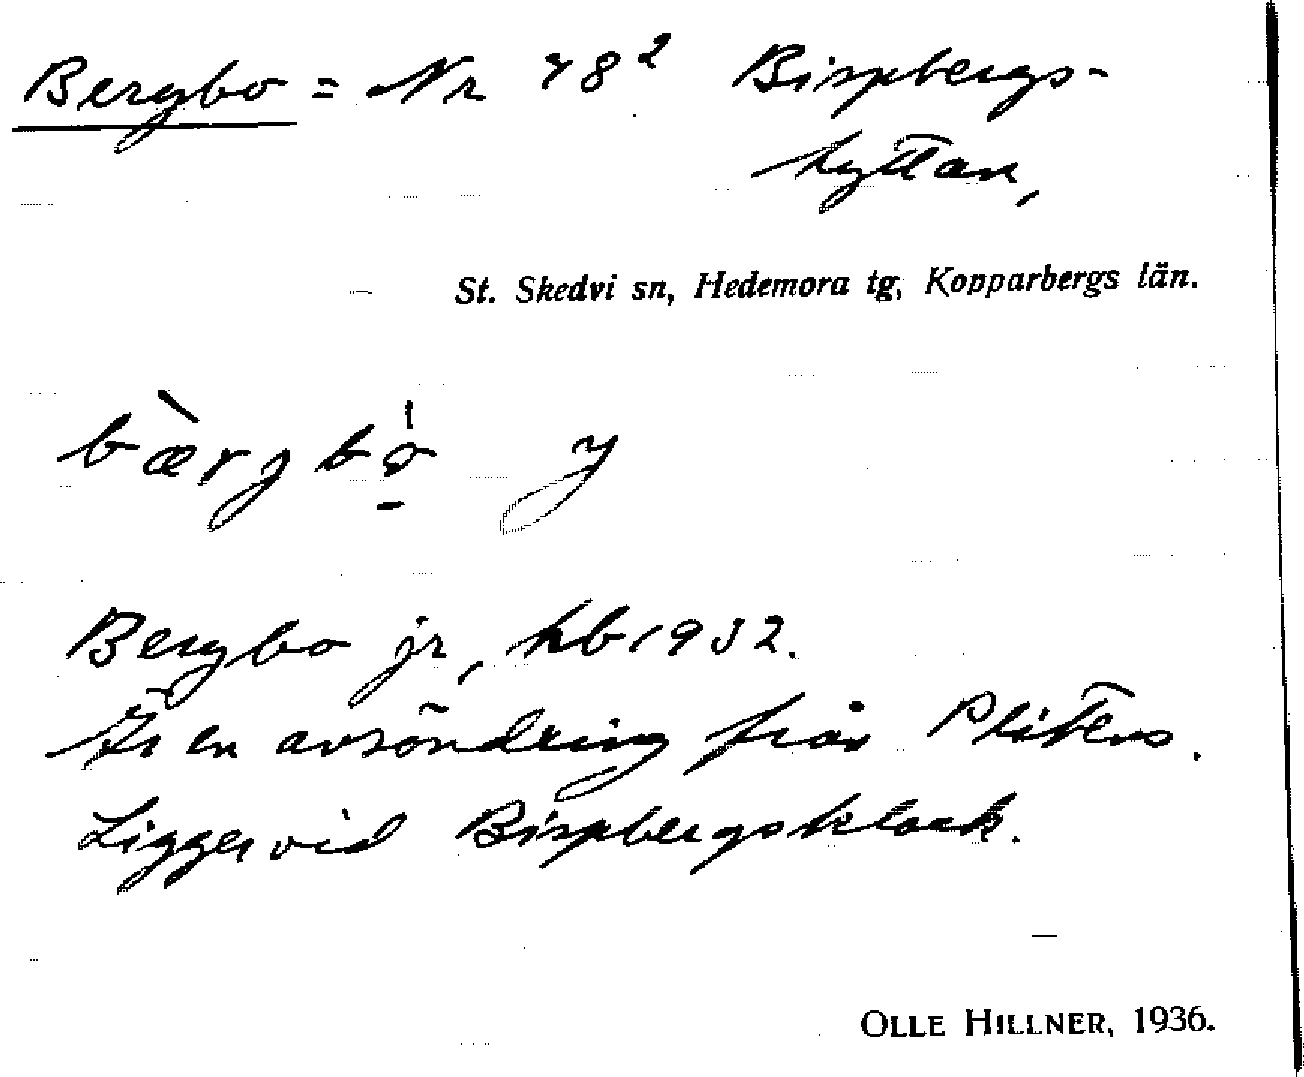 Bergbo = Nr 78² Bispbergs-
hyttan,
St. Skedvi sn, Hedemora tg, Kopparbergs län.
bæ̀rgbo̠ y
Bergbo jr, hb 1932.
Är en avsöndring från Plitens.
Ligger vid Bispbergsklack.
OLLE HILLNER, 1936.